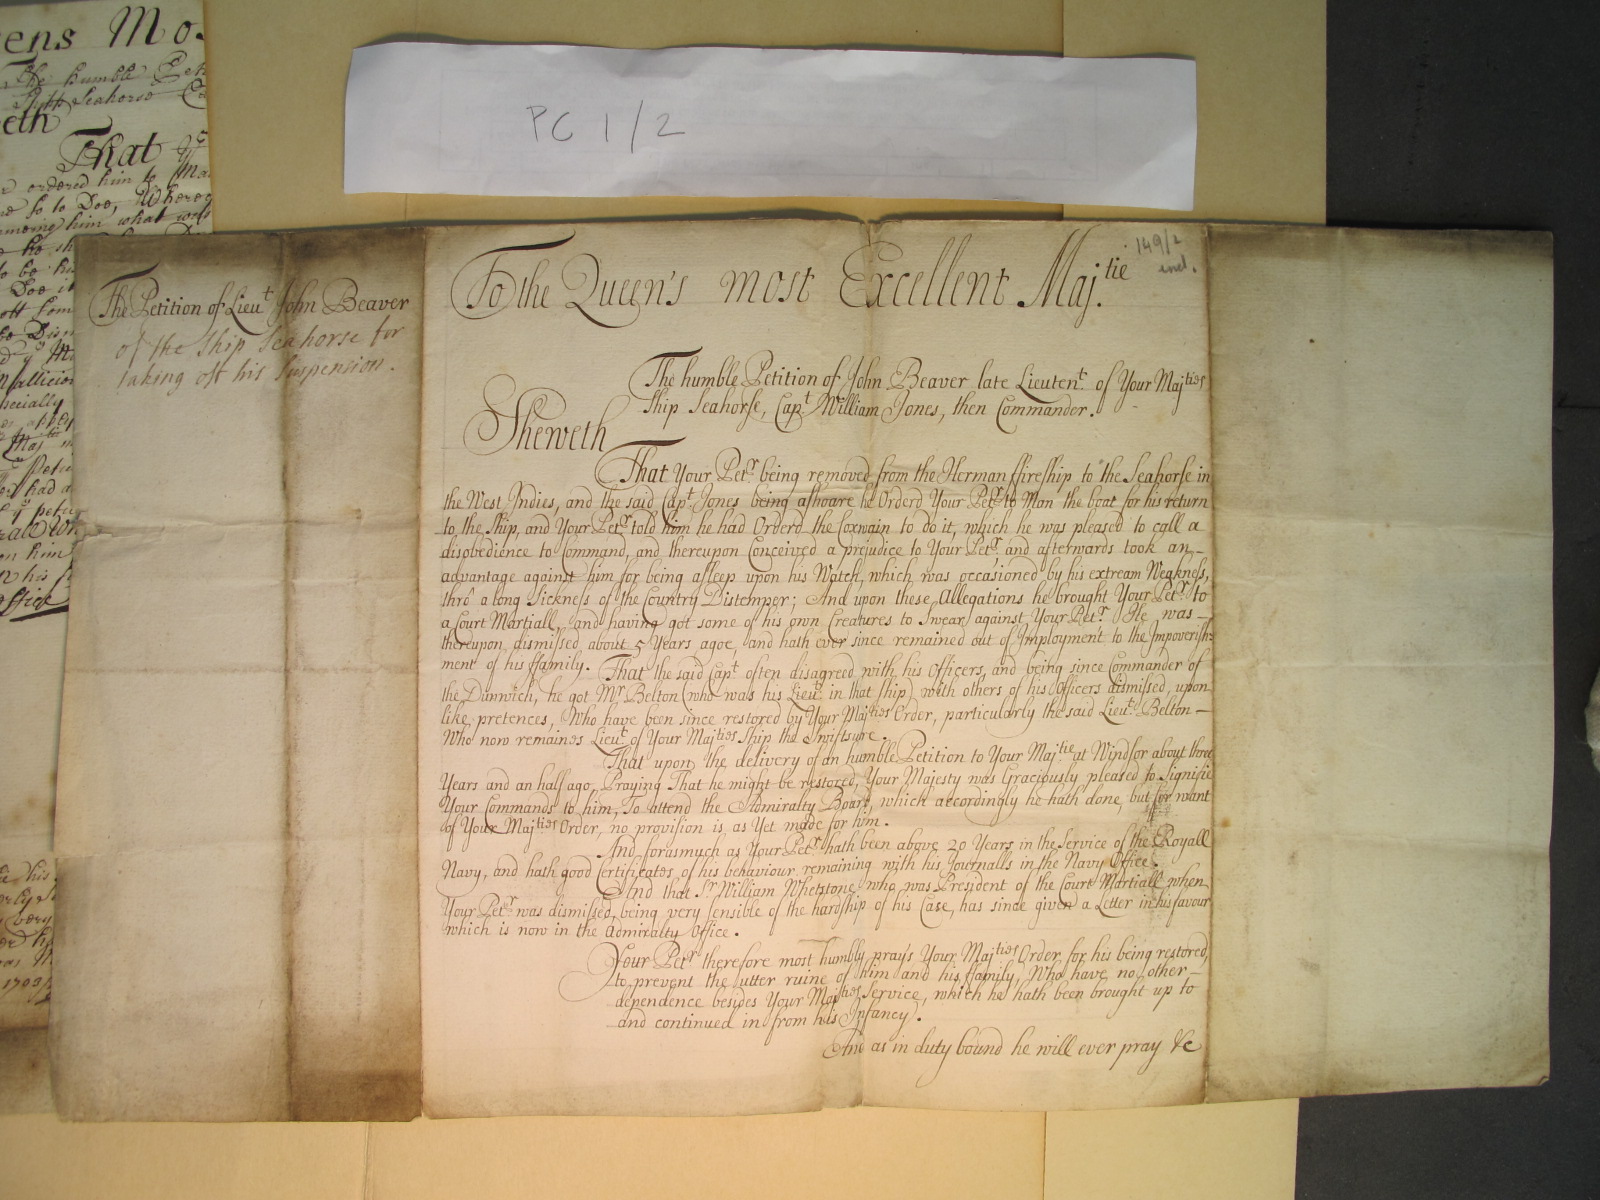 PC 1/2
ens Mos
The humble Pet
Seahorse
eth
That
ordered him to Ma
so to Doe, Whereo
him what
149/2
encl.
The Petition of Lieut John Beaver
of the Ship Seahorse for
taking off his Suspension.
To the Queen's most Excellent Maj.tie
The humble Petition of John Beaver late Lieutent. of Your Majties
Ship Seahorse, Capt William Jones, then Commander.
Sheweth
That Your Petr. being removed from the Herman ffireship to the Seahorse in
the West Indies, and the said Capt. Jones being ashoare he Orderd Your Petr. to Man the boat for his return
to the Ship, and Your Petr. told him he had Orderd the Coxwain to do it, which he was pleased to call a
disobedience to Command, and thereupon Conceived a prejudice to Your Petr. and afterwards took an
advantage against him for being asleep upon his Watch, which was occasioned by his extream Weakness,
thro' a long Sickness of the Country Distemper; And upon these Allegations he brought Your Petr. to
a Court Martiall, and having got some of his own Creatures to Swear against Your Petr. He was
thereupon dismissed about 5 Years agoe, and hath ever since remained out of Imployment to the Impoverish-
ment of his ffamily. That the said Capt. often disagreed with his Officers, and being since Commander of
the Dunwich, he got Mr. Belton (who was his Lieut. in that Ship) with others of his Officers dismissed, upon
like pretences, Who have been since restored by Your Majties Order, particularly the said Lieut. Belton
Who now remaines Lieut. of Your Majties Ship the Swiftsure.
That upon the delivery of an humble Petition to Your Majtie at Windsor about three
Years and an half ago, Praying That he might be restored, Your Majesty was Graciously pleased to Signifie
Your Commands to him, To attend the Admiralty Board, which accordingly he hath done, but for want
of Your Majties Order, no provision is as Yet made for him.
And forasmuch as Your Petr. hath been above 20 Years in the Service of the Royall
Navy, and hath good Certificates of his behaviour remaining with his Journalls in the Navy Office.
And that Sr. William Whetstone who was President of the Court Martiall when
Your Petr. was dismissed, being very sensible of the hardship of his Case, has since given a Letter in his favour
which is now in the Admiralty Office.
Your Petr. therefore most humbly prays Your Majties Order for his being restored,
to prevent the utter ruine of him and his ffamily, Who have no other
dependence besides Your Majties Service, which he hath been brought up to
and continued in from his Infancy.
And as in duty bound he will ever pray &c